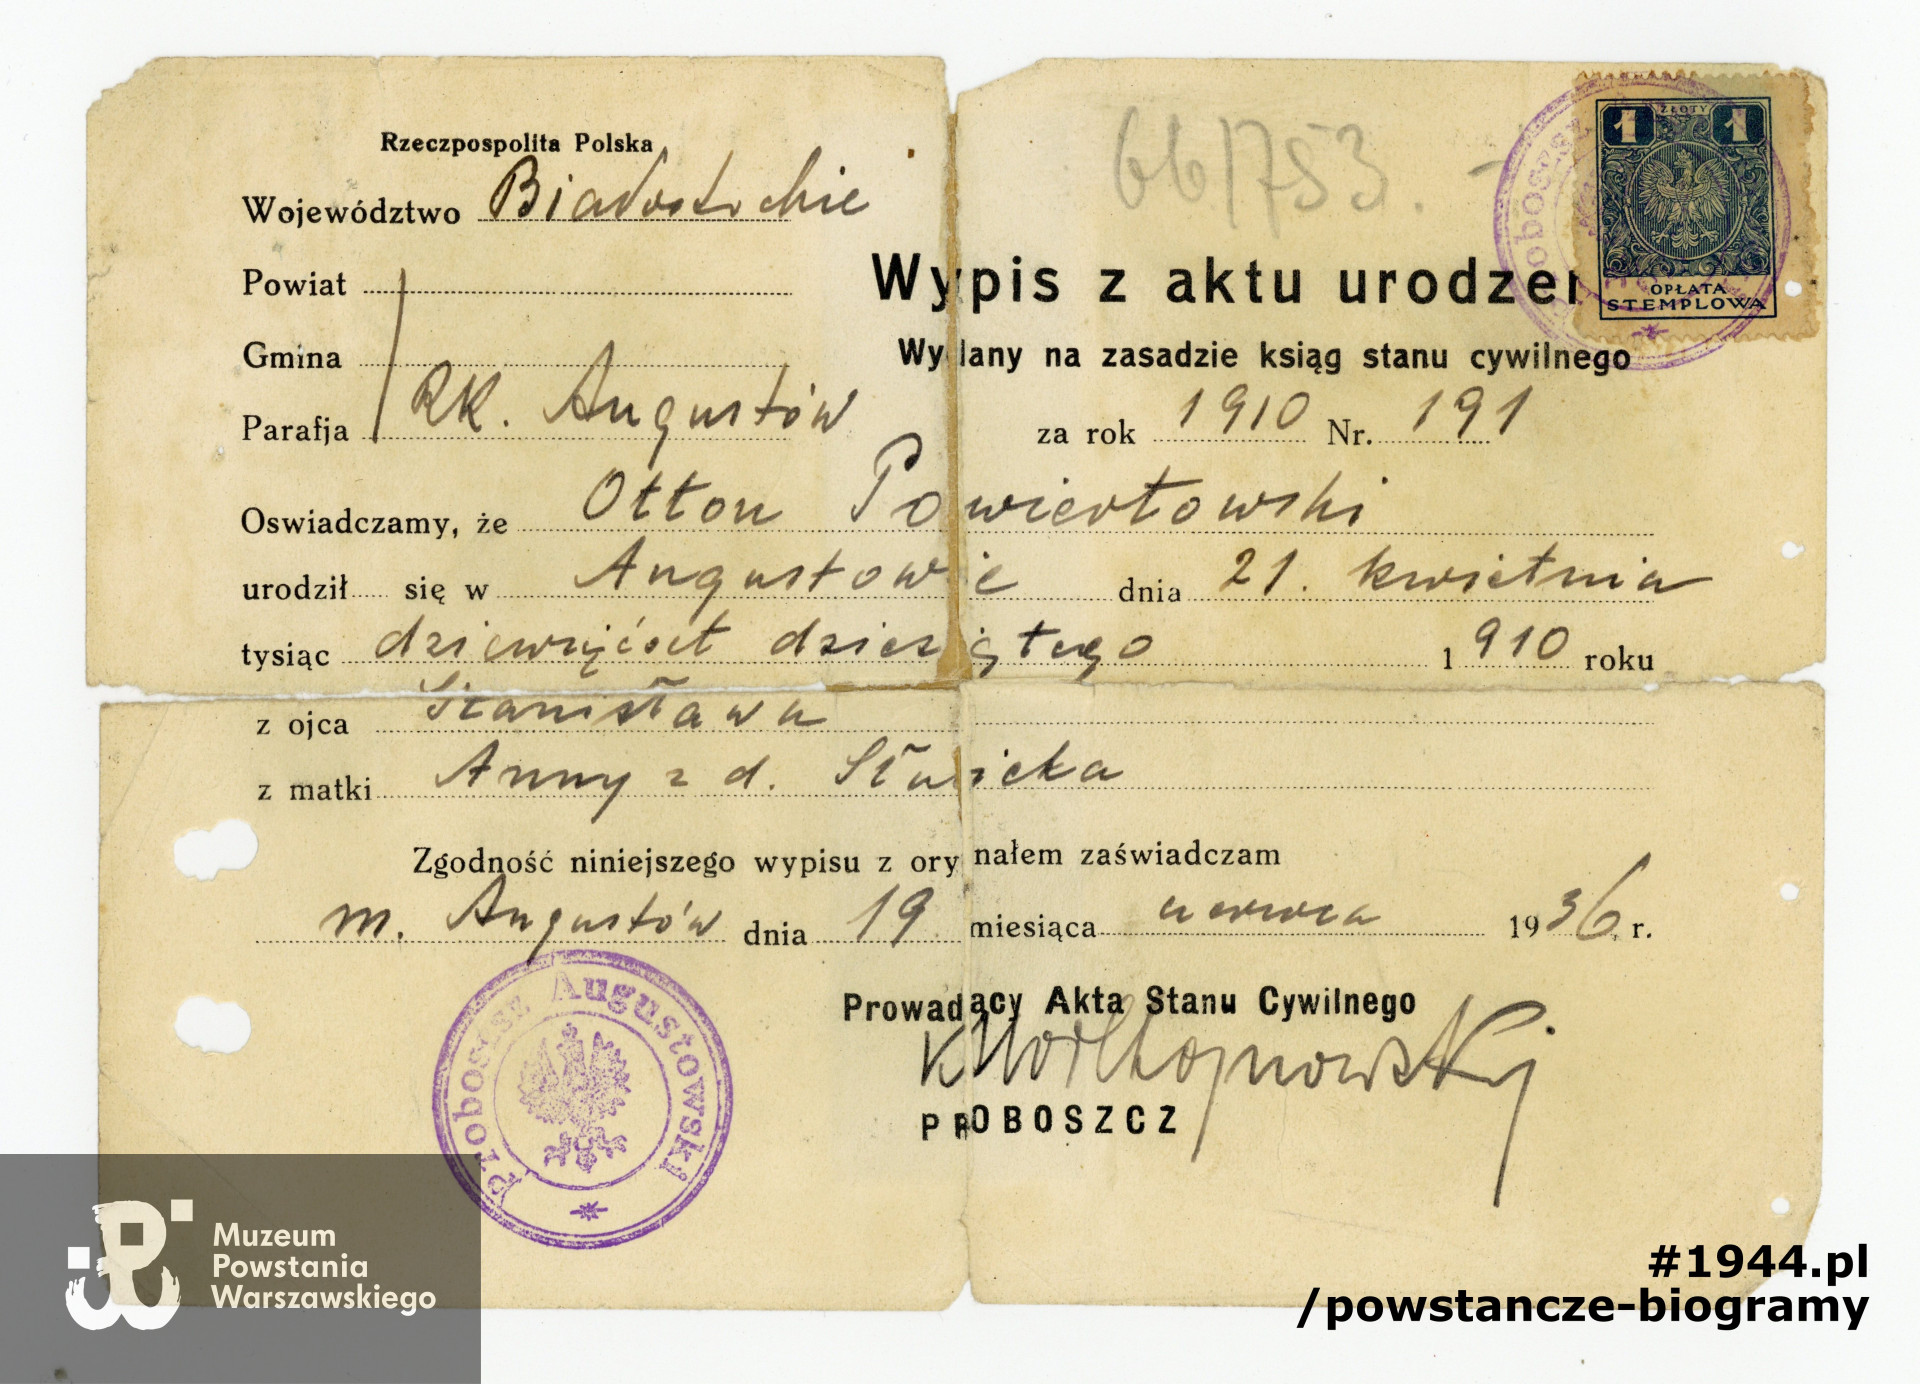 Rzeczpospolita Polska
Województwo Białostockie
66/753.
1 ZŁOTY 1
OPŁATA
STEMPLOWA
Powiat
Wypis z aktu urodzen
Gmina
Wydany na zasadzie ksiąg stanu cywilnego
Parafja RK. Augustów
za rok 1910 Nr. 191
Oświadczamy, że Otton Powiertowski
urodził się w Augustowie dnia 21. kwietnia
tysiąc dziewięćset dziesiątego 1910 roku
z ojca Stanisława
z matki Anny z d.
Zgodność niniejszego wypisu z ory nałem zaświadczam
m. Augustów dnia 19 miesiąca czerwca 1936 r.
Prowadzący Akta Stanu Cywilnego
PROBOSZCZ
Proboszcz Augustowski
Muzeum
Powstania
Warszawskiego
#1944.pl
/powstancze-biogramy